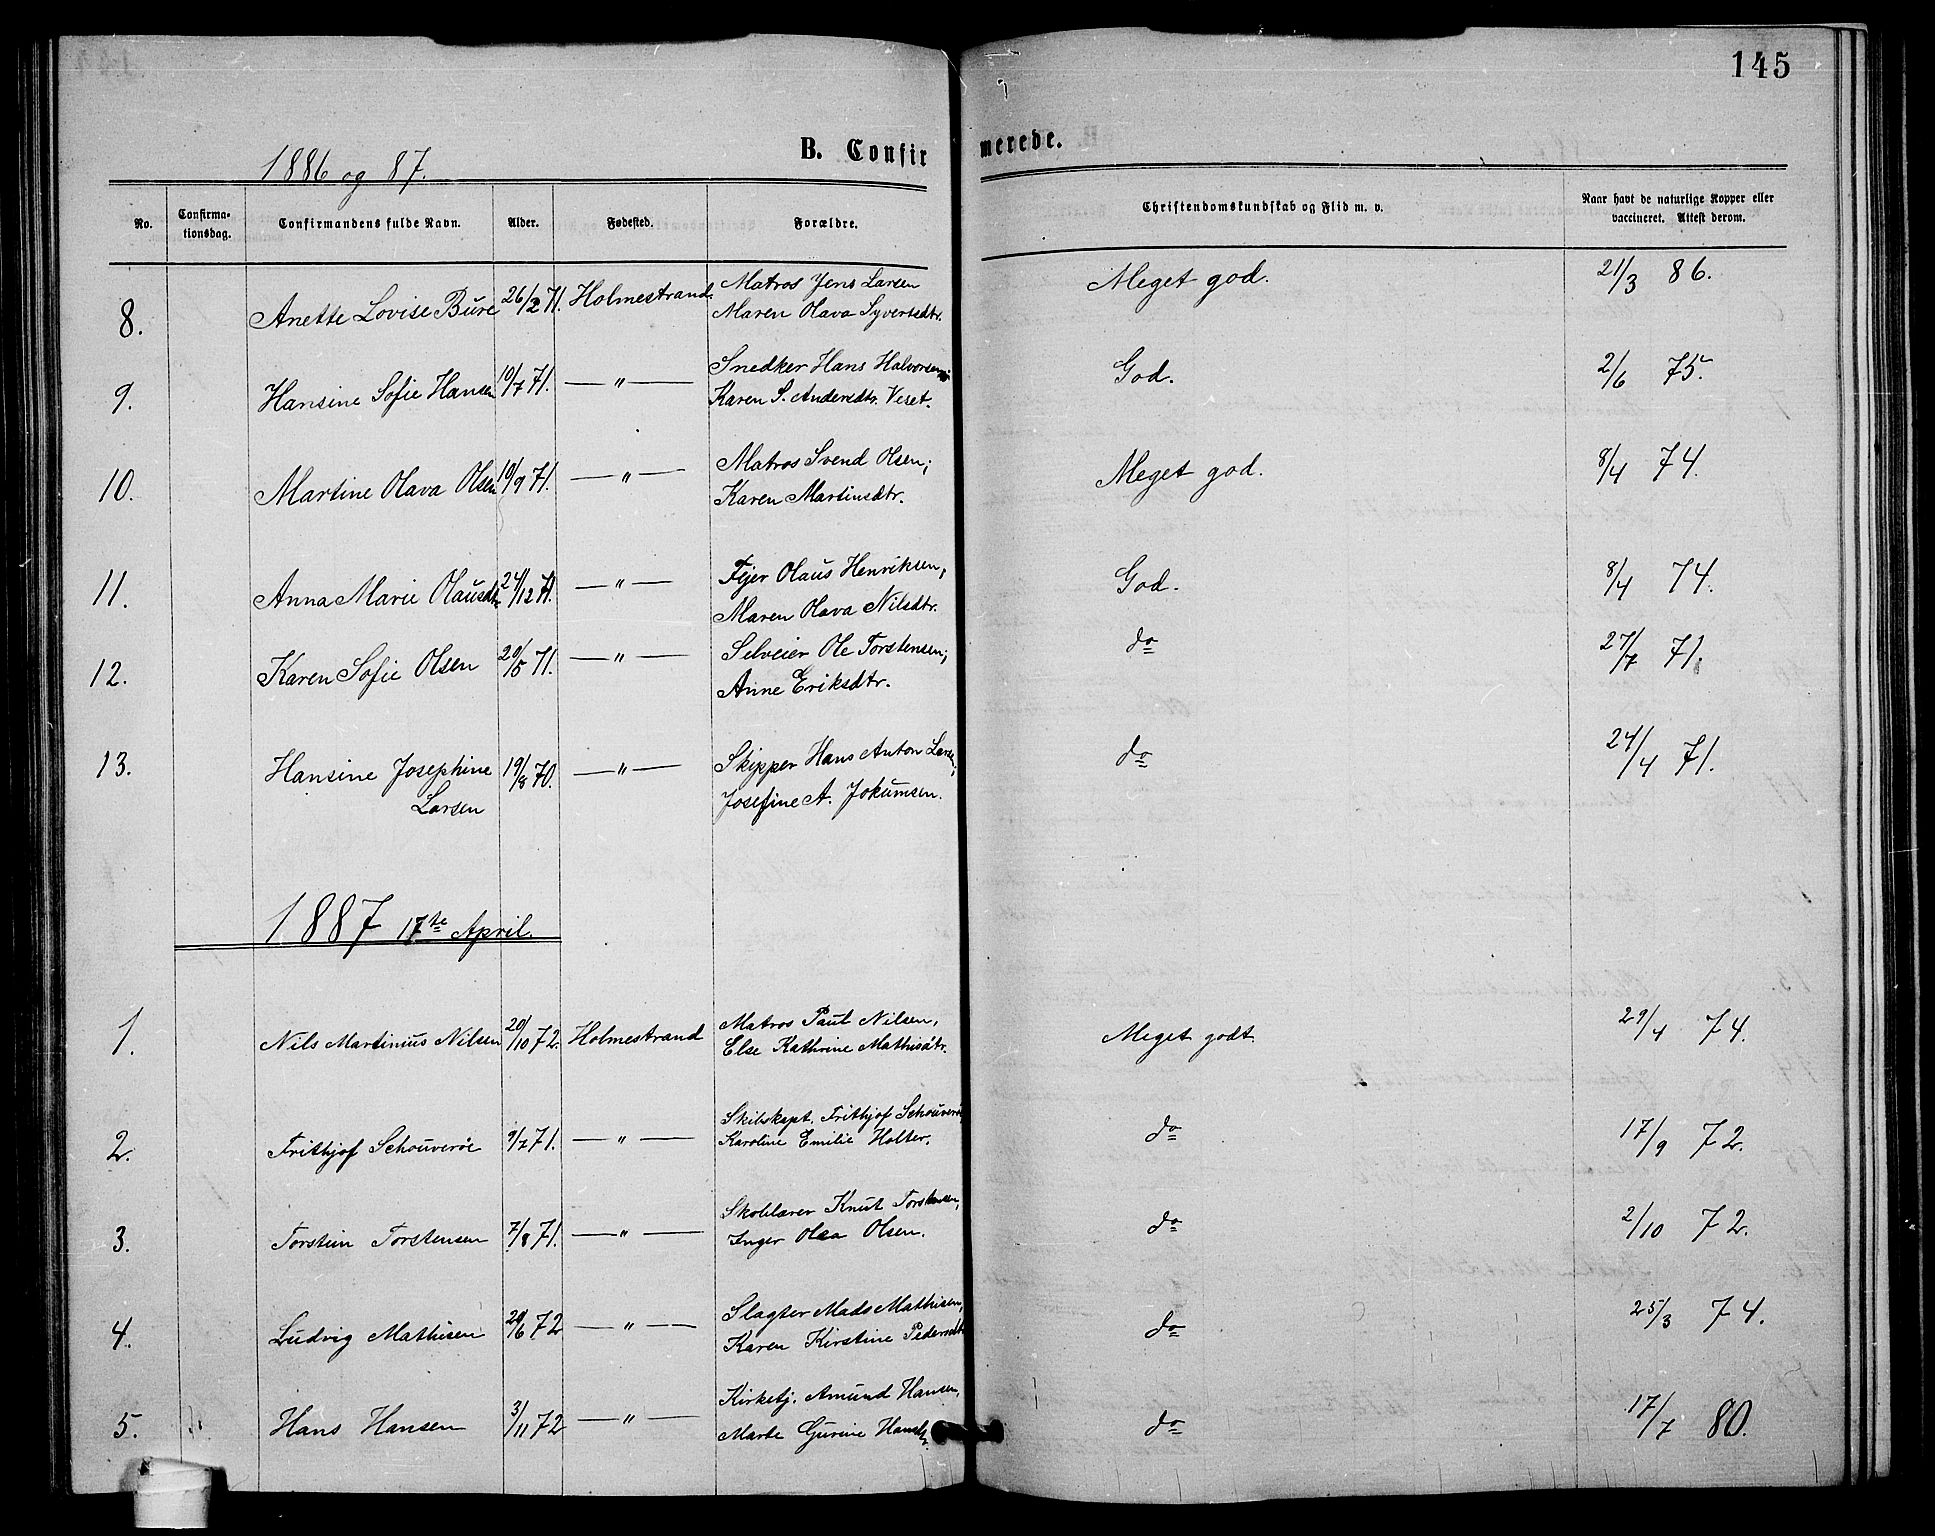 145
B. Confirmerede.
1886 og 87.
No. Confirmationsdag. Confirmandens fulde Navn. Alder. Fødested. Forældre. Christendomskundskab og Flid m. v. Naar havt de naturlige Kopper eller vaccineret. Attest derom.
8. Anette Lovise Bure 26/2 71. Holmestrand. Matros Jens Larsen Meget god. 21/3 86.
Maren Olava Syvertsdtr.
9. Hansine Sofie Hansen 10/7 71. — " — Snedker Hans Halvorsen; God. 2/6 75.
Karen S. Andersdtr. Veset.
10. Martine Olava Olsen 10/9 71. — " — Matros Svend Olsen; Meget god. 8/4 74.
Karen Martinsdtr.
11. Anna Marie Olausdtr. 24/12 71. — " — Fejer Olaus Henriksen; God. 8/4 74.
Maren Olava Nilsdtr.
12. Karen Sofie Olsen 20/5 71. — " — Selveier Ole Torstensen; do 27/7 71.
Anne Eriksdtr.
13. Hansine Josephine 19/8 70. — " — Skipper Hans Anton Larsen; do 24/4 71.
Larsen Josefine A. Jokumsen.
1887 17te April.
1. Nils Martinius Nilsen 20/10 72. Holmestrand Matros Paul Nilsen, Meget godt. 29/4 74.
Else Kathrine Mathisdtr.
2. Frithjof Schouverøe 9/7 71. — " — Skibskapt. Frithjof Schouverøe do 17/9 72.
Karoline Emilie Holter.
3. Torstein Torstensen 7/8 71. — " — Skolelærer Knut Torstensen, do 2/10 72.
Inger Olea Olsen.
4. Ludvig Mathisen 20/6 72 — " — Slagter Mads Mathisen, do 25/3 74.
Karen Kirstine Pedersdtr.
5. Hans Hansen 3/11 72 — " — Kirketj. Amund Hansen, do 17/7 80.
Marte Gurine Hansdtr.